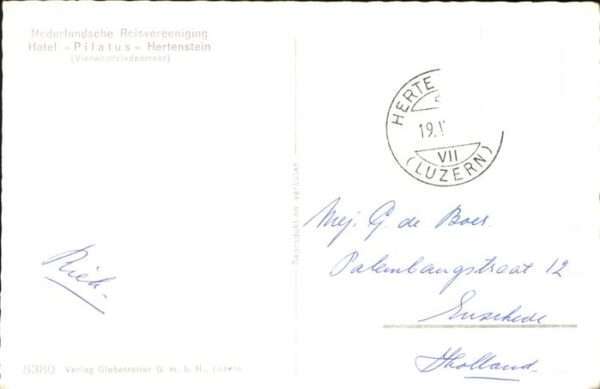 Nederlandsche Reisvereeniging
Hotel «Pilatus» Hertenstein
(Vierwaldstädtersee)
HERTE
19.1
VII
(LUZERN)
Reproduktion verboten
Mej. G. de Boer
Palembangstraat 12
Enschede
Holland.
Riek.
5380 Verlag Globetrotter G. m. b. H., Luzern